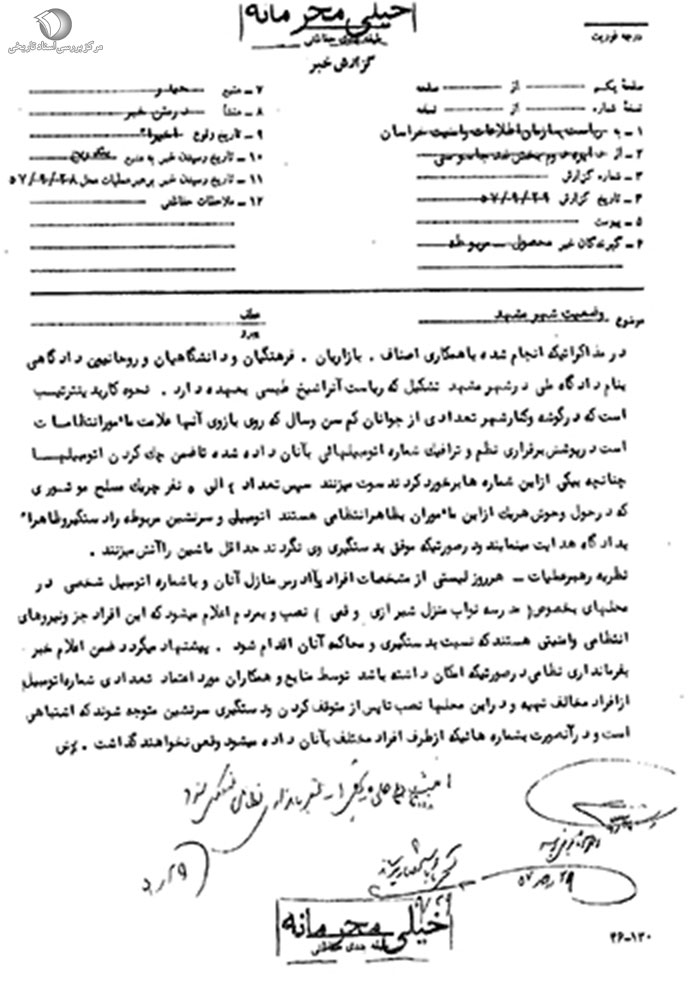 مرکز بررسی اسناد تاریخی
خیلی محرمانه
طبقه بندی حفاظتی
درجه فوریت
گزارش خبر
صفحهٔ یکم از صفحه
نسخهٔ شماره از نسخه
۱ - به ریاست سازمان اطلاعات و امنیت خراسان
۲ - از دایره دوم بخش ضد جاسوسی
۳ - شماره گزارش
۴ - تاریخ گزارش ۵۷/۰۹/۰۲۹
۵ - پیوست
۶ - گیرندگان خبر محصول مربوطه
۷ - منبع
۸ - منشأ در متن خبر
۹ - تاریخ وقوع اخیراً
۱۰ - تاریخ رسیدن خبر به منبع
۱۱ - تاریخ رسیدن خبر برهبر عملیات محل ۵۷/۰۹/۰۲۸
۱۲ - ملاحظات حفاظتی
موضوع وضعیت شهر مشهد
عطف
پیرو
در مذاکراتیکه انجام شده با همکاری اصناف . بازاریان . فرهنگیان و دانشگاهیان و روحانیین دادگاهی
بنام دادگاه ملی در شهر مشهد تشکیل که ریاست آنرا شیخ طبسی بعهده دارد . نحوه کار بدینترتیب
است که در گوشه و کنار شهر تعدادی از جوانان کم سن وسال که روی بازوی آنها علامت مأمور انتظامات
است در پوشش برقراری نظم و ترافیک شماره اتومبیلهائی بآنان داده شده تا ضمن چک کردن اتومبیلها
چنانچه بیکی از این شماره ها برخورد کردند سوت میزنند سپس تعداد ۴ الی ۵ نفر چریک مسلح موتوری
که در حول وحوش هریک از این مأموران بظاهر انتظامی هستند اتومبیل و سرنشین مربوطه را دستگیر وظاهراً
بدادگاه هدایت مینمایند و در صورتیکه موفق بدستگیری وی نگردند حداقل ماشین را آتش میزنند .
نظریه رهبر عملیات - هرروز لیستی از مشخصات افراد یا آدرس منازل آنان و یا شماره اتومبیل شخصی در
محلهای بخصوص ( مدرسه نواب منزل شیرازی و قمی ) نصب و بمردم اعلام میشود که این افراد جز ونیروهای
انتظامی وامنیتی هستند که نسبت بدستگیری و محاکمه آنان اقدام شود . پیشنهاد میگردد ضمن اعلام خبر
بفرمانداری نظامی در صورتیکه امکان داشته باشد توسط منابع و همکاران مورد اعتماد تعدادی شماره اتومبیل
از افراد مخالف تهیه و در این محلها نصب تا پس از متوقف کردن و دستگیری سرنشین متوجه شوند که اشتباهی
است و در آنصورت بشماره هائیکه از طرف افراد مختلف بآنان داده میشود وقعی نخواهند گذاشت .
نظامی
خیلی محرمانه
طبقه بندی حفاظتی
۳۶-۱۲۰